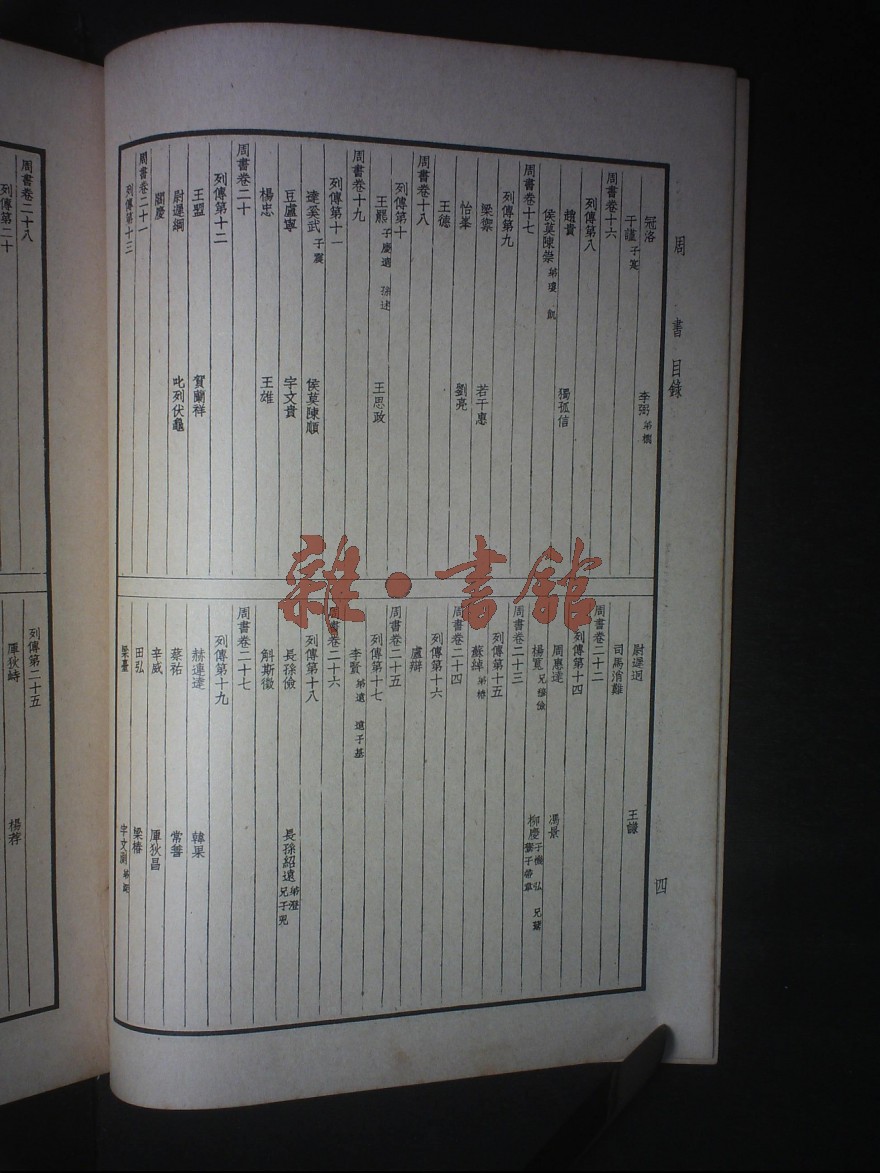 周書 目錄
四
寇洛 李弼 弟檦
于謹 子寔
周書卷十六
列傳第八
趙貴 獨孤信
侯莫陳崇 弟瓊 凱
周書卷十七
列傳第九
梁禦 若干惠
怡峯 劉亮
王德
周書卷十八
列傳第十
王羆 子慶遠 孫述 王思政
周書卷十九
列傳第十一
達奚武 子震 侯莫陳順
豆盧寧 宇文貴
楊忠 王雄
周書卷二十
列傳第十二
王盟 賀蘭祥
尉遲綱 叱列伏龜
閻慶
周書卷二十一
列傳第十三
尉遲迥 王謙
司馬消難
周書卷二十二
列傳第十四
周惠達 馮景
楊寬 兄穆 儉 柳慶 子機 弘 兄鷟 鷟子帶韋
周書卷二十三
列傳第十五
蘇綽 弟椿
周書卷二十四
列傳第十六
盧辯
周書卷二十五
列傳第十七
李賢 弟遠 遠子基
周書卷二十六
列傳第十八
長孫儉 長孫紹遠 弟澄 兄子兕
斛斯徵
周書卷二十七
列傳第十九
赫連達 韓果
蔡祐 常善
辛威 厙狄昌
田弘 梁椿
梁臺 宇文測 弟深
周書卷二十八
列傳第二十
列傳第二十五
厙狄峙 楊荐
雜·書館